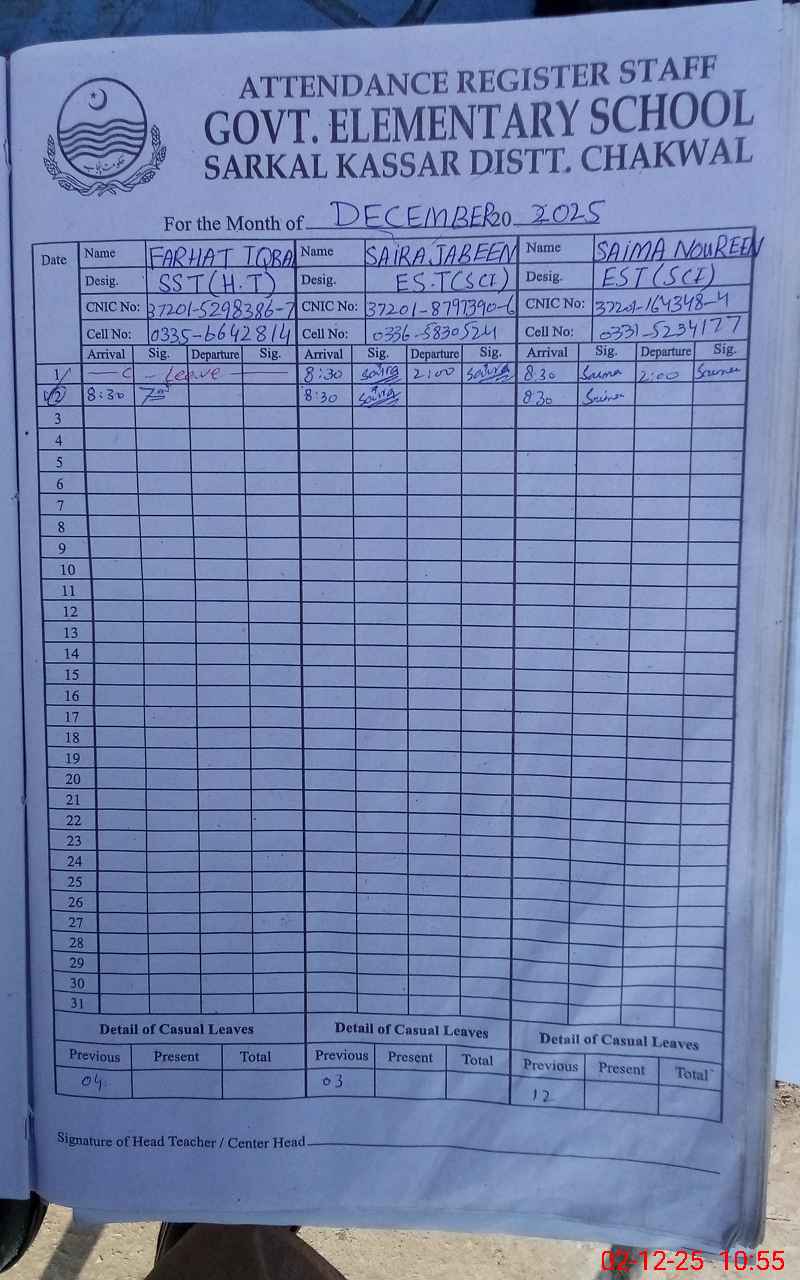 ATTENDANCE REGISTER STAFF
GOVT. ELEMENTARY SCHOOL
SARKAL KASSAR DISTT. CHAKWAL
For the Month of DECEMBER 20 2025
Date Name FARHAT IQBA Name SAIRA JABEEN Name SAIMA NOUREEN
Desig. SST(H.T) Desig. ES.T(SCI) Desig. EST(SCI)
CNIC No: 37201-5298386-7 CNIC No: 37201-8797390-6 CNIC No: 37201-164348-4
Cell No: 0335-6642814 Cell No: 0336-5830524 Cell No: 0331-5234177
Arrival Sig. Departure Sig. Arrival Sig. Departure Sig. Arrival Sig. Departure Sig.
1 C - Leave 8:30 Saira 2:00 Saira 8:30 Saima 2:00 Saima
2 8:30 8:30 Saira 8:30 Saima
3
4
5
6
7
8
9
10
11
12
13
14
15
16
17
18
19
20
21
22
23
24
25
26
27
28
29
30
31
Detail of Casual Leaves Detail of Casual Leaves Detail of Casual Leaves
Previous Present Total Previous Present Total Previous Present Total
04 03 12
Signature of Head Teacher / Center Head
02-12-25 10:55